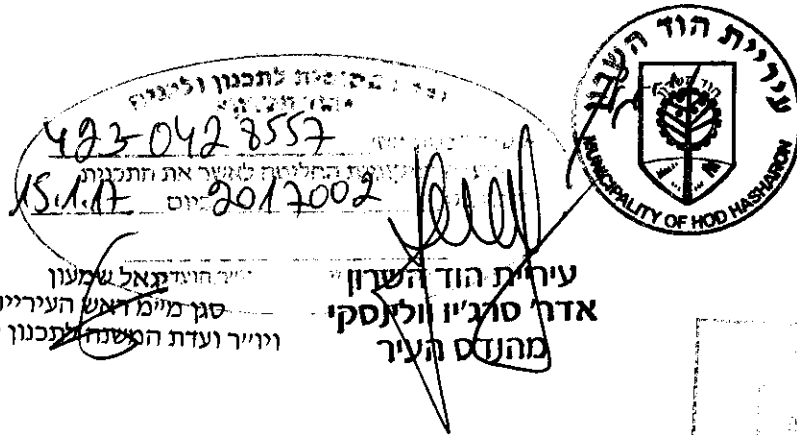 עיריית הוד השרון
הוד השרון
MUNICIPALITY OF HOD HASHARON
לתכנון ולבניה
423-0428557
החליטה לאשר את התכנית
2017002 ביום 15.1.17
יגאל שמעון
סגן מ"מ ראש העירייה
ויו"ר ועדת המשנה לתכנון
עיריית הוד השרון
אדר' סרג'יו וולינסקי
מהנדס העיר